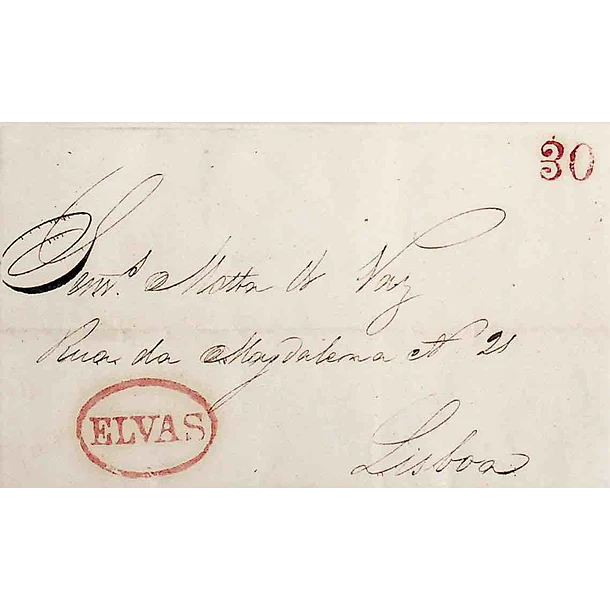 30
Senrs. Motta & Vaz
Rua da Magdalena No. 21
ELVAS
Lisboa